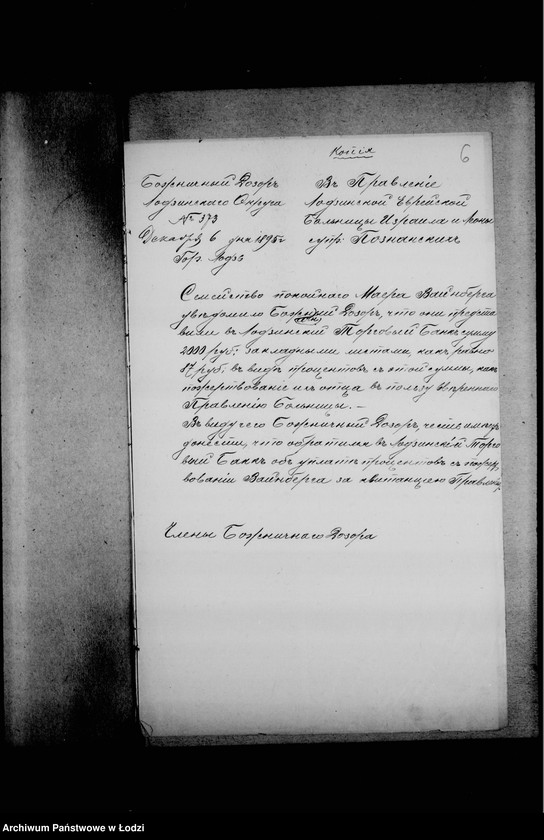 Копія
6
Божничный Дозоръ
Лодзинскаго Округа
№ 373
Декабря 6 дня 1895 г.
Гор. Лодзь
Въ Правленіе
Лодзинской Еврейской
Больницы Израиля и Леоны
супр: Познанскихъ
Семейство покойнаго Маера Вайнберга
увѣдомило Божничный Дозоръ, что они предста
вили въ Лодзинскій Торговый Банкъ сумму
2000 руб: закладными листами, какъ равно
87 руб. въ видѣ процентовъ съ этой суммы, какъ
пожертвованіе ихъ отца въ пользу ввѣреннаго
Правленію Больницы. —
Въ виду сего Божничный Дозоръ, честь имѣетъ
донести, что обратился въ Лодзинскій Торго
вый Банкъ объ уплатѣ процентовъ съ пожерт
вованія Вайнберга за квитанціею
Члены Божничнаго Дозора
Archiwum Państwowe w Łodzi